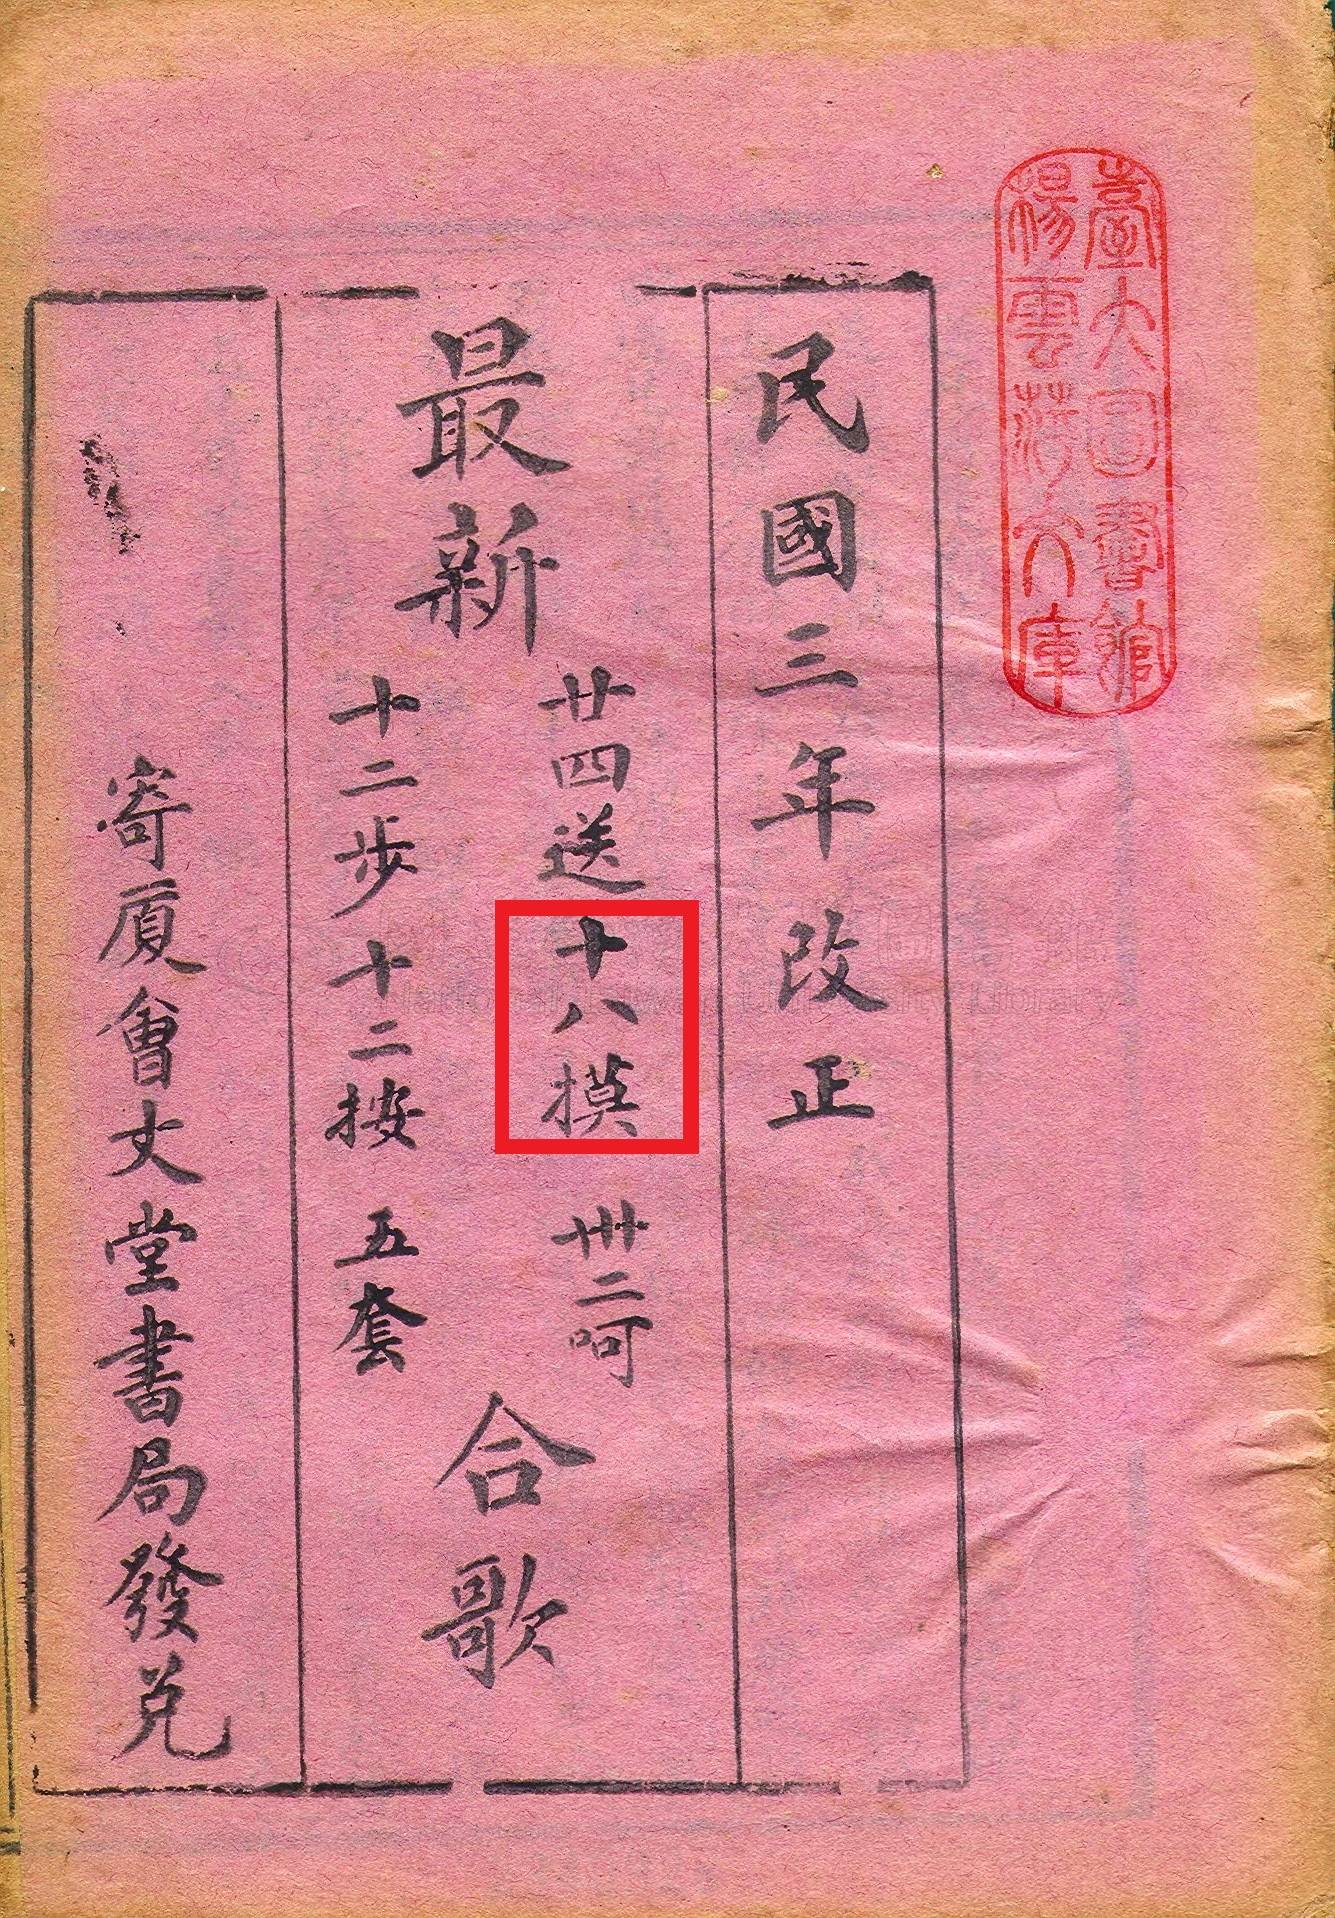 臺大圖書館
楊雲萍文庫
民國三年改正
最新
廿四送十八摸 卅二呵
十二步十二按 五套
合歌
寄廈會文堂書局發兌
National Taiwan University Library